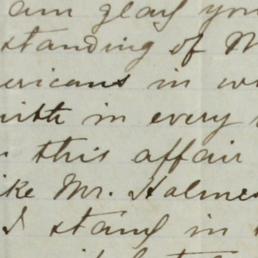 am glad you
standing of M
ericans in w
with in every
this affair
ike Mr. Holmes
I stand in